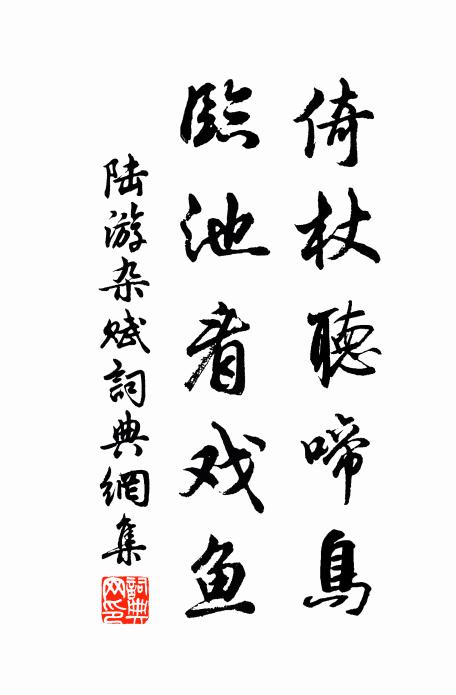 倚杖聽啼鳥
臨池看戏鱼
陆游杂赋詞典網集
詞典网印